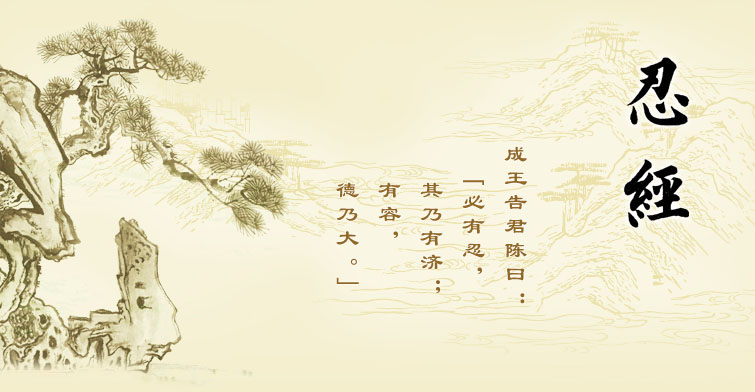 忍經
成王告君陈曰：
「必有忍，
其乃有济；
有容，
德乃大。」